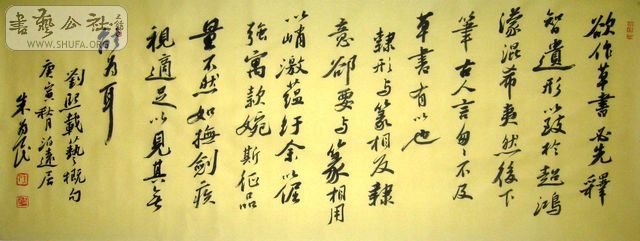 欲作草書必先釋
智遺形以致於超鴻
濛混希夷然後下
筆古人言匆匆不及
草書有以也
隸形与篆相反隸
意卻要与篆相用
以峭激蕴纡余以倔
強寓款婉斯征品
量不然如撫劍疾
視適足以見其无
能为耳
劉熙載藝概句
庚寅秋月泊遠居
朱
書藝公社
WWW.SHUFA.ORG